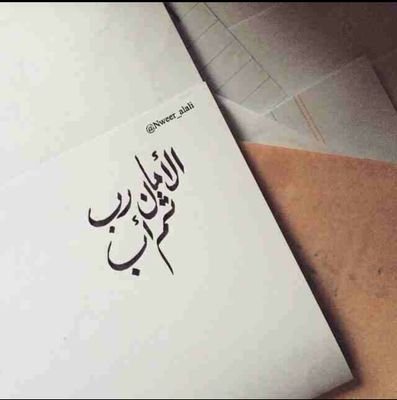 @Nweer_alali
الأمان رب
ثم أب